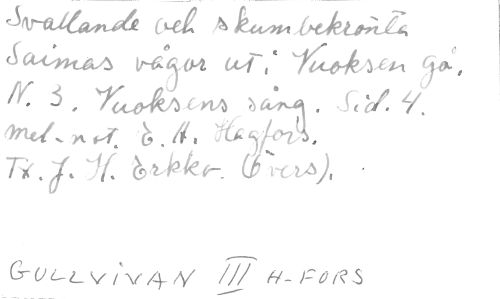 Svallande och skumbekrönta
Saimas vågor ut i Vuoksen gå.
N. 3. Vuoksens sång. Sid. 4.
mel-not. E. A. Hagfors.
Tx. J. H. Erkko. (Övers).
GULLVIVAN III H-FORS